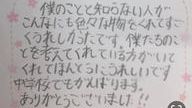 僕のことを知らない人が
こんなにも色々な物をくれてすご
くうれしかったです。僕たちのこ
とを考えてくれている方がいて
くれてほんとうにうれしいです
中学校でもがんばります。
ありがとうございました!!